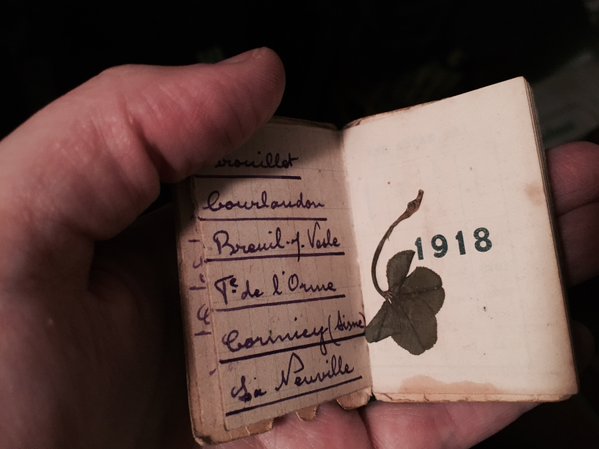 Courlandon
Breuil-s. Vesle
Fe. de l'Orme
Cormicy (Aisne)
La Neuville
1918